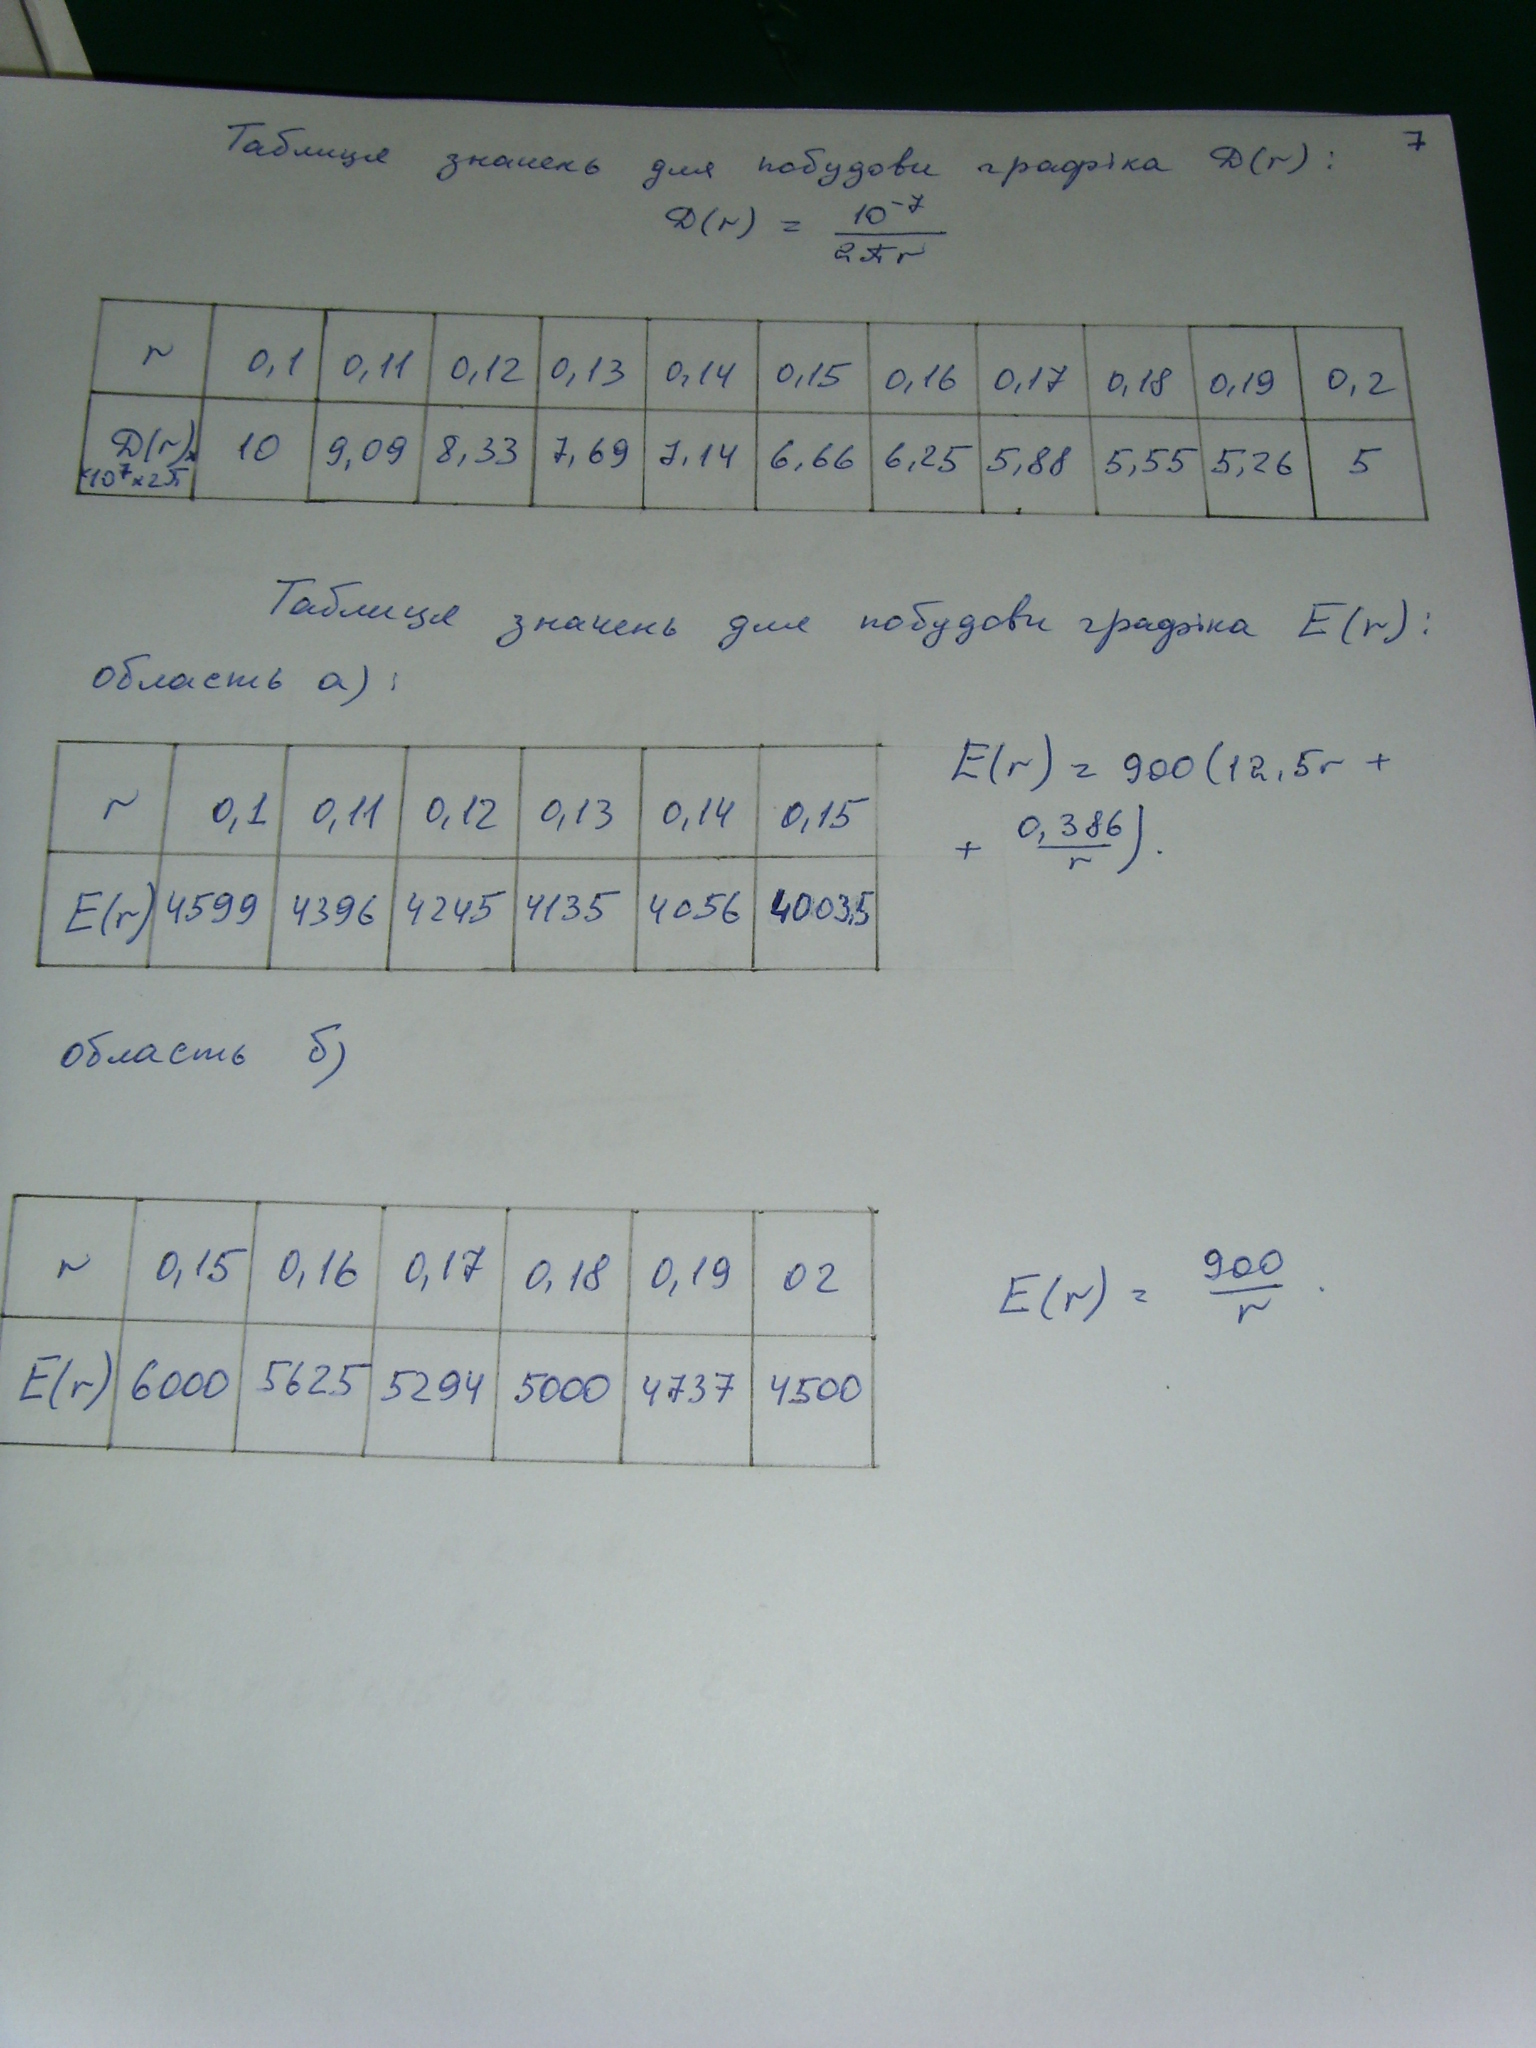 7
Таблиця значень для побудови графіка D(r):
D(r) = 10⁻⁷ / 2πr
r 0,1 0,11 0,12 0,13 0,14 0,15 0,16 0,17 0,18 0,19 0,2
D(r)× ×10⁷×2π 10 9,09 8,33 7,69 7,14 6,66 6,25 5,88 5,55 5,26 5
Таблиця значень для побудови графіка E(r):
область а):
E(r) = 900(12,5r +
+ 0,386/r).
r 0,1 0,11 0,12 0,13 0,14 0,15
E(r) 4599 4396 4245 4135 4056 4003,5
область б)
r 0,15 0,16 0,17 0,18 0,19 02
E(r) 6000 5625 5294 5000 4737 4500
E(r) = 900/r.